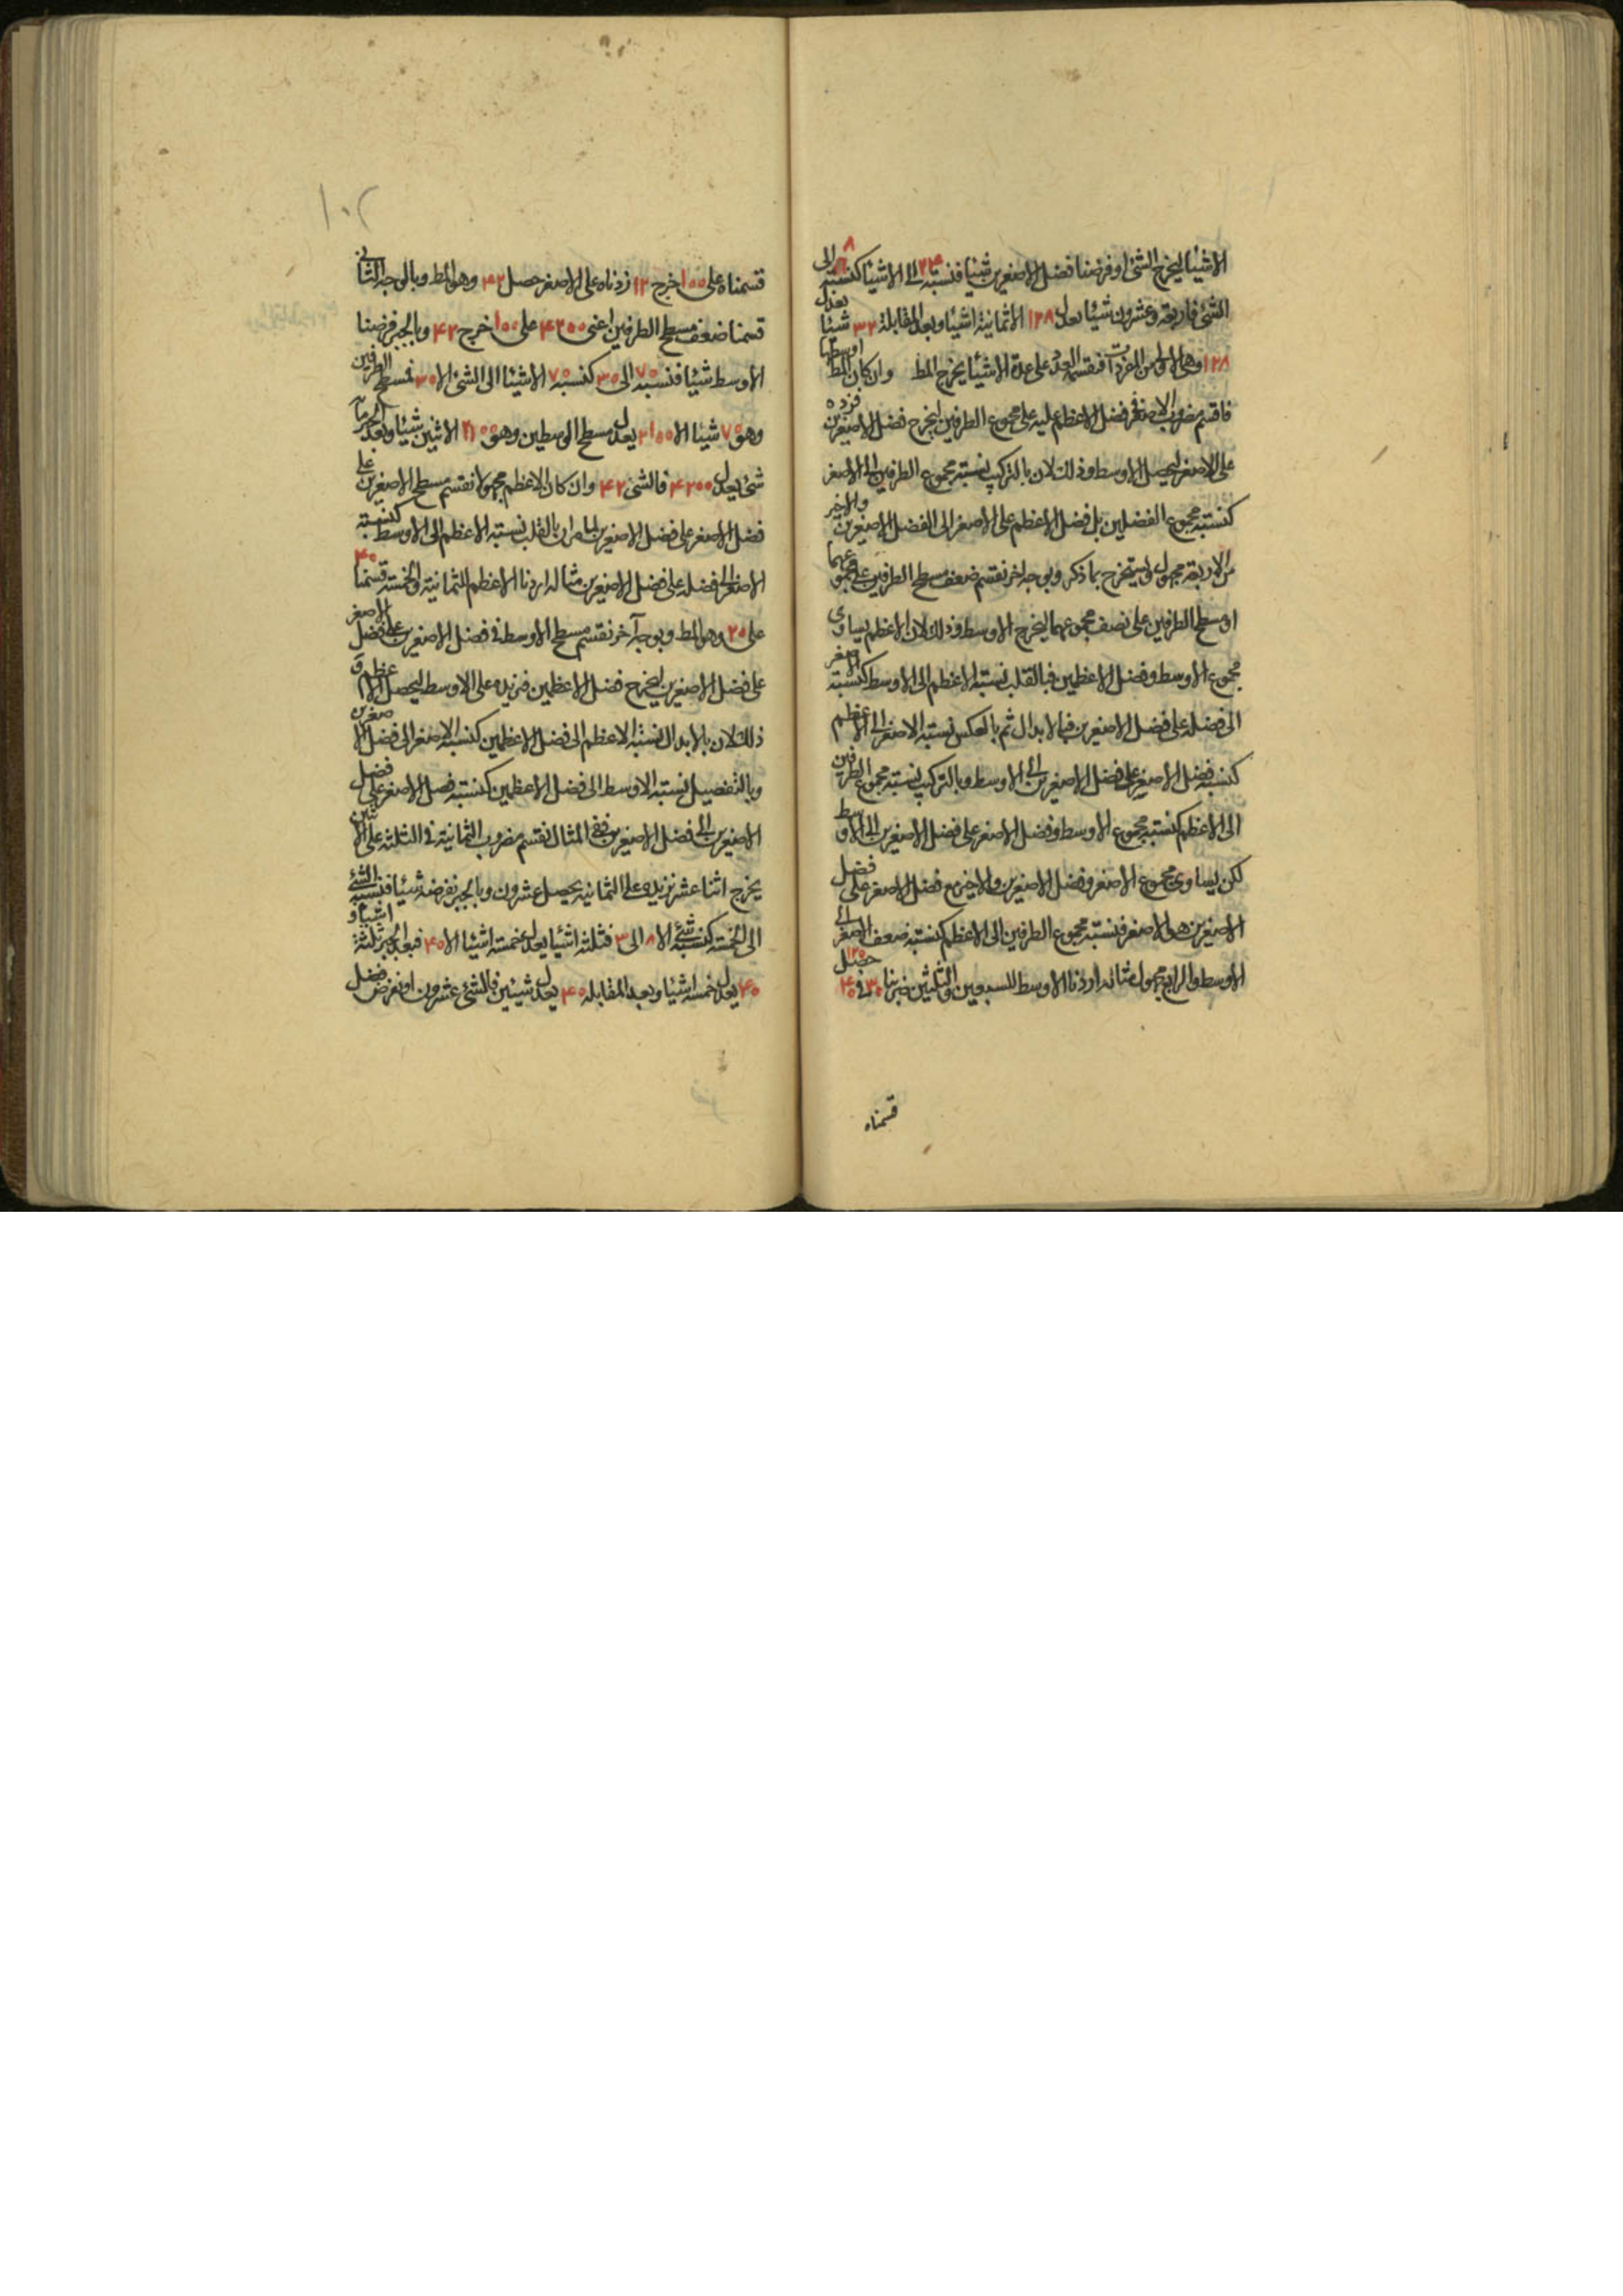 الاشيا ليخرج الشئ او فرضنا فضل الاصغرين شيئا فنسبة ٢٤ الى الا شيئا كنسبة ٨ الى
الشئ فاربعة وعشرون شيئا يعدل ١٢٨ الا ثمانية اشيا وبعد المقابلة ٣٢ شيئا يعدل
١٢٨ وهى الاولى من المفردات فنقسم العدد على عدة الاشيا يخرج المط وان كان المط اوسطها
فاقسم مضروب الاصغر فى فضل الاعظم عليه على مجموع الطرفين ليخرج فضل الاصغرين فزده
على الاصغر ليحصل الاوسط وذلك لان بالتركيب نسبة مجموع الطرفين الى الاصغر
كنسبة مجموع الفضلين بل فضل الاعظم على الاصغر الى الفضل الاصغرين والاخير
من الاربعة مجهول ويستخرج بما ذكر وبوجه اخر نقسم ضعف مسطح الطرفين على مجموعهما
او مسطح الطرفين على نصف مجموعهما ليخرج الاوسط وذلك لان الاعظم يساوى
مجموع الاوسط وفضل الاعظمين فبالقلب نسبة الاعظم الى الاوسط كنسبة الاصغر
الى فضله على فضل الاصغرين فبالابدال ثم بالعكس نسبة الاصغر الى الاعظم
كنسبة فضل الاصغر على فضل الاصغرين الى الاوسط وبالتركيب نسبة مجموع الطرفين
الى الاعظم كنسبة مجموع الاوسط وفضل الاصغر على فضل الاصغرين الى الاوسط
لكن يساوى مجموع الاصغر وفضل الاصغرين والاخير مع فضل الاصغر على فضل
الاصغرين هو الاصغر فنسبة مجموع الطرفين الى الاعظم كنسبة ضعف الاصغر الى
الاوسط والرابع مجهول مثاله اردنا الاوسط للسبعين والثلثين ضربنا ٣٠ فى ٤٠ حصل ١٢٠٠
قسمناه
١٠٢
قسمناه على ١٠٠ خرج ١٢ زدناه على الاصغر حصل ٤٢ وهو المط وبالوجه الثانى
قسمنا ضعف مسطح الطرفين اعنى ٤٢٠٠ على ١٠٠ خرج ٤٢ وبالجبر فرضنا
الاوسط شيئا فنسبة ٧٠ الى ٣٠ كنسبة ٧٠ الا شيئا الى الشئ الا ٣٠ فمسطح الطرفين
وهو ٧٠ شيئا الا ٢١٠٠ يعدل مسطح الوسطين وهو ٢١٠٠ الا ثلثين شيئا وبعد الجبر مائة
شئ يعدل ٤٢٠٠ فالشئ ٤٢ وان كان الاعظم مجهولا نقسم مسطح الاصغرين على
فضل الاصغر على فضل الاصغرين لما مر ان بالقلب نسبة الاعظم الى الاوسط كنسبة
الاصغر الى فضله على فضل الاصغرين مثاله اردنا الاعظم للثمانية والخمسة قسمنا ٤٠
على ٢ وهو المط وبوجه آخر نقسم مسطح الاوسط فى فضل الاصغرين على فضل الاصغر
على فضل الاصغرين ليخرج فضل الاعظمين فنزيده على الاوسط ليحصل الاعظم و
ذلك لان بالابدال نسبة الاعظم الى فضل الاعظمين كنسبة الاصغر الى فضل الاصغرين
وبالتفصيل نسبة الاوسط الى فضل الاعظمين كنسبة فضل الاصغر على فضل
الاصغرين الى فضل الاصغرين ففى المثال نقسم مضروب الثمانية فى الثلثة على الاثنين
يخرج اثنا عشر نزيده على الثمانية يحصل عشرون وبالجبر نفرضه شيئا فنسبة الشئ
الى الخمسة كنسبة شئ الا ٨ الى ٣ فثلثة اشيا يعدل خمسة اشيا الا ٤٠ فبعد الجبر ثلثة اشيا و
٤٠ يعدل خمسة اشيا وبعد المقابلة ٤٠ يعدل شيئين فالشئ عشرون او نفرض فضل